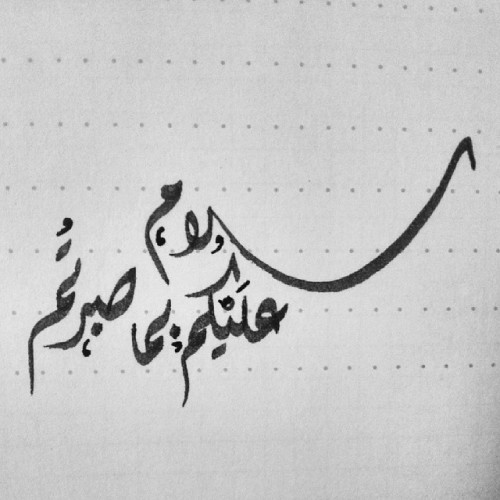 سلام
عليكم بما صبرتم